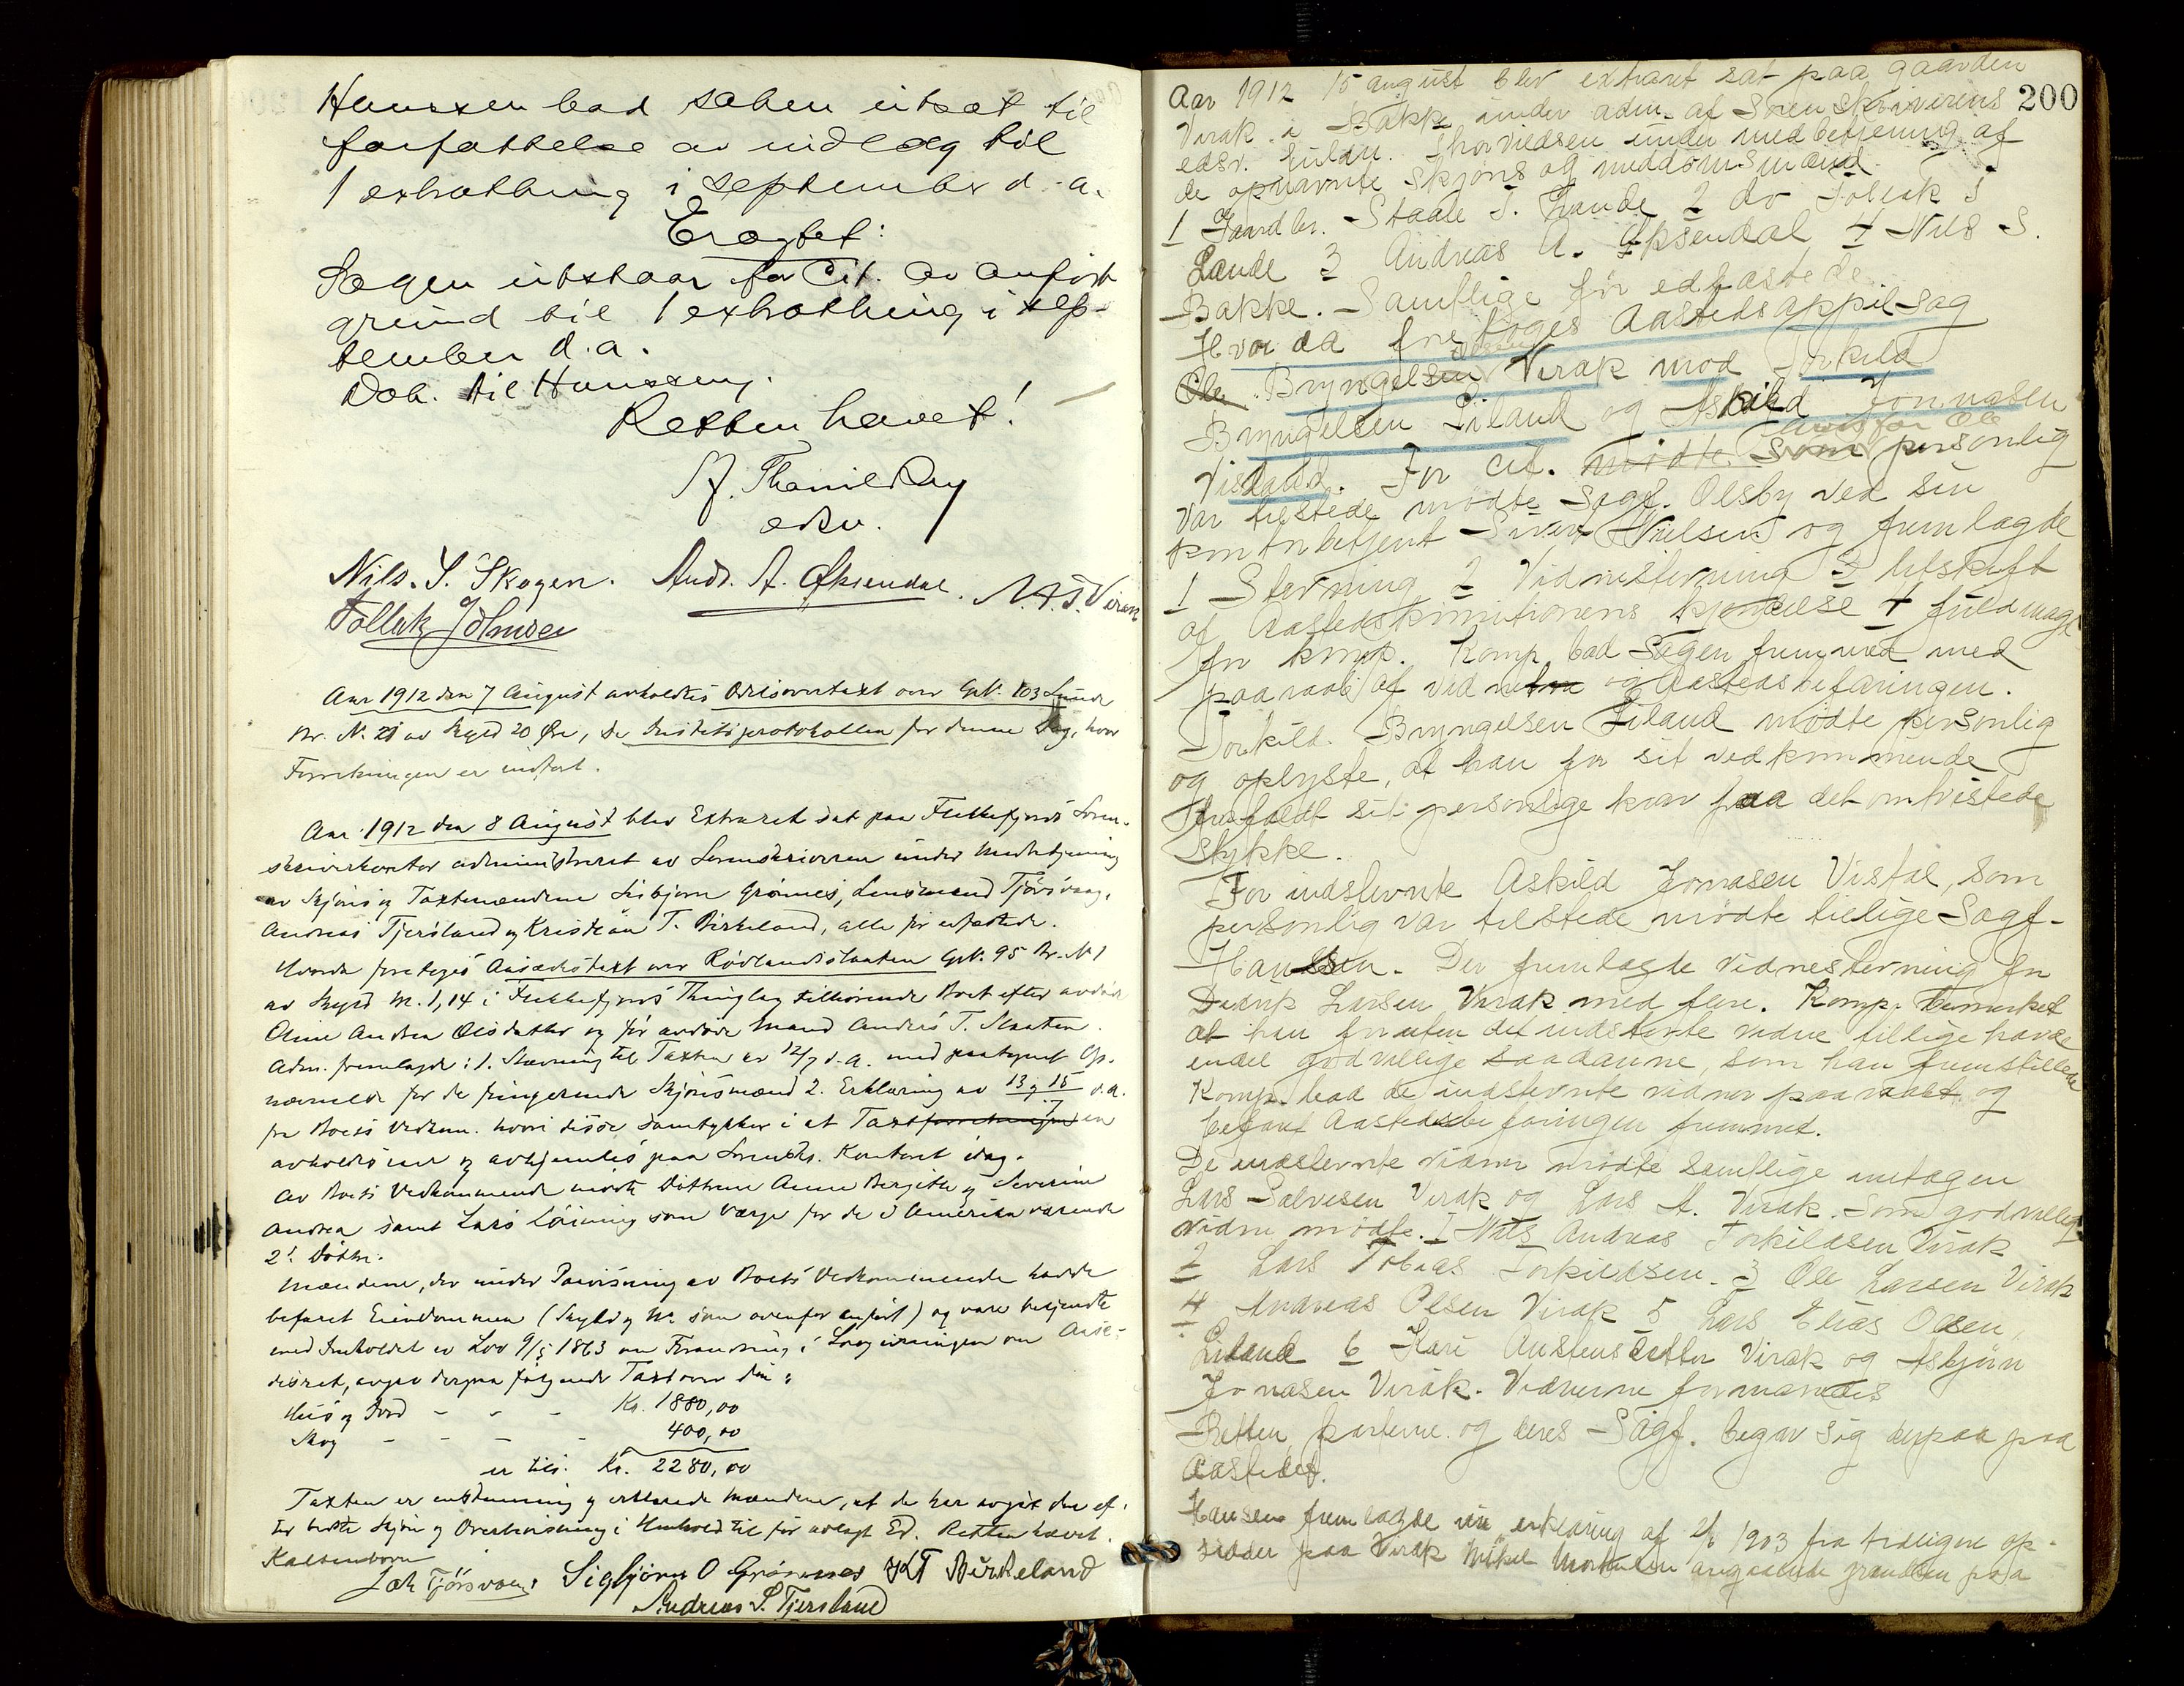 Hanssen bad saken utsat til
forfattelse av indlæg til
1 extrathing i September d.a.
Eragtet:
Sagen utstaar for Cit. av anført
grund til 1 extrathing i sep-
tember d.a.
Dok. til Hanssen.
Retten hævet!
edsv.
Nils. S. Skogen. Andr. A. Øksendal.
Tollak Johnsen
Aar 1912 den 7 August avholdtes Odelsovertaxt over Gr.N. 103 Lunde
Br. N. 21 av Skyld 20 Øre, se Justitsprotokollen for denne Dag, hvor
Forretningen er indført.
Aar 1912 den 8 August blev Extraret sat paa Flekkefjords Soren-
skriverkontor administreret av Sorenskriveren under Medbetjening
av Skjøns og Taxtmændene Sigbjørn Grønnes, Lensmand Tjørsvaag,
Andreas Tjersland og Kristian T. Birkeland, alle før edfæstede.
Hvorda foretoges Aasædestaxt over Rødlandsslaaten Gr.N. 95 Br.N. 1
av Skyld M. 1,14 i Flekkefjords Thinglag tilhørende Boet efter avdøde
Anne Andrea Olsdatter og før avdøde Mand Andreas T. Slaaten.
Adm. fremlagde: 1. Stævning til Taxten av 12/7 d.a. med paategnet Op-
nævnelse for de fungerende Skjønsmænd 2. Erklæring av 13 og 15/7 d.a.
fra Boets Vedkom. hvori disse samtykker i at Taxtforretningen
avholdes og avhjemles paa Sorenskr. Kontoret idag.
Av Boets Vedkommende mødte Døttrene Anne Bergitte og Severine
Andrea samt Lars Løining som Værge for de i Amerika værende
2 Døttre.
Mændene, der under Paavisning av Boets Vedkommende hadde
befaret Eiendommen (Skyld og No som ovenfor anført) og vare bekjendte
med Indholdet av Lov 9/5 1863 om Forandring i Lovgivningen om Aasæ-
desret, avgav derpaa følgende Taxt over den:
Hus og Jord - - - Kr. 1880,00
Skog - - - - 400,00
er til. Kr. 2280,00
Taxten er enstemmig og erklærede Mændene, at de har avgit den ef-
ter bedste Skjøn og Overbevisning i Henhold til før avlagt Ed. Retten hævet.
Kaltenborn
Joh Tjørsvaag. Sigbjørn O Grønnes KT Birkeland
Andreas S. Tjersland
200
Aar 1912 15 august blev extraret sat paa gaarden
Virak i Bakke under adm. af Sorenskriverens
edsv. fuldm. Thorvildsen under medbetjening af
de opnævnte skjøns og meddomsmænd.
1 Gaardbr. Staale T. Lande 2 do Tollak T
Lande 3 Andreas A. Øksendal 4 Nils S.
Bakke. Samtlige før edfæstede.
Hvor da foretoges Aastedsappelsag
Ole Bryngelsen Virak mod Torkild
Bryngelsen Liland og Askild Jonnasen
Visdahl. For Cit. mødte som personlig
var tilstede mødte Sagf. Olsby ved sin
kontorbetjent Nielsen og fremlagde
1 Stevning 2 Vidnestevning 3 Utskrift
af Aastedskomitionens kjendelse 4 fuldmagt
for komp. Komp bad Sagen fremmed med
paaraab af vidnerne og Aastedsbefaringen.
Torkild Bryngelsen Liland mødte personlig
og oplyste, at han for sit vedkommende
frafaldt sit personlige krav paa det omtvistede
stykke.
For indstevnte Askild Jonnasen Visdal, som
personlig var tilstede mødte tillige Sagf.
Hanssen. Der fremlagde vidnestevning for
Didrik Larsen Virak med flere. Komp. bemerket
at han foruten det indstevnte vidne tillige havde
endel godvillige saadanne, som han fremstillede
Komp. bad de indstevnte vidner paaraabt og
befaret Aastedsbefaringen fremmet.
De indstevnte vidner mødte samtlige untagen
Lars Salvesen Virak og Lars A. Virak. Som godvillige
vidne mødte. 1 Nils Andreas Torkildsen Virak
2 Lars Tobias Torkildsen. 3 Ole Larsen Virak
4 Andreas Olsen Virak 5 Lars Elias Olsen,
Liland 6 Kari Austensdatter Virak og Asbjørn
Jonasen Virak. Vidnerne formanedes
Retten, parterne og deres Sagf. begav sig derpaa paa
aastedet.
Hansen fremlagde nu erklæring af 2/6 1903 fra tidligere op-
sidder paa Virak Mikel Mortensen angaaende grændsen paa